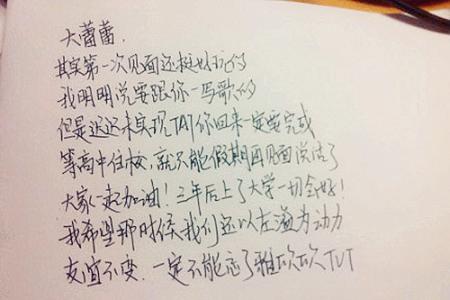 大蕾蕾.
其实第一次见面还挺好玩的
我明明说要跟你一写歌的
但是迟迟未实现TAT你回来一定要完成
等高中住校,就只能假期再见面说话了
大家一起加油!三年后上了大学一切会好!
我希望那时候我们还以左溢为动力
友谊不变.一定不能忘了雅欣欣TUT